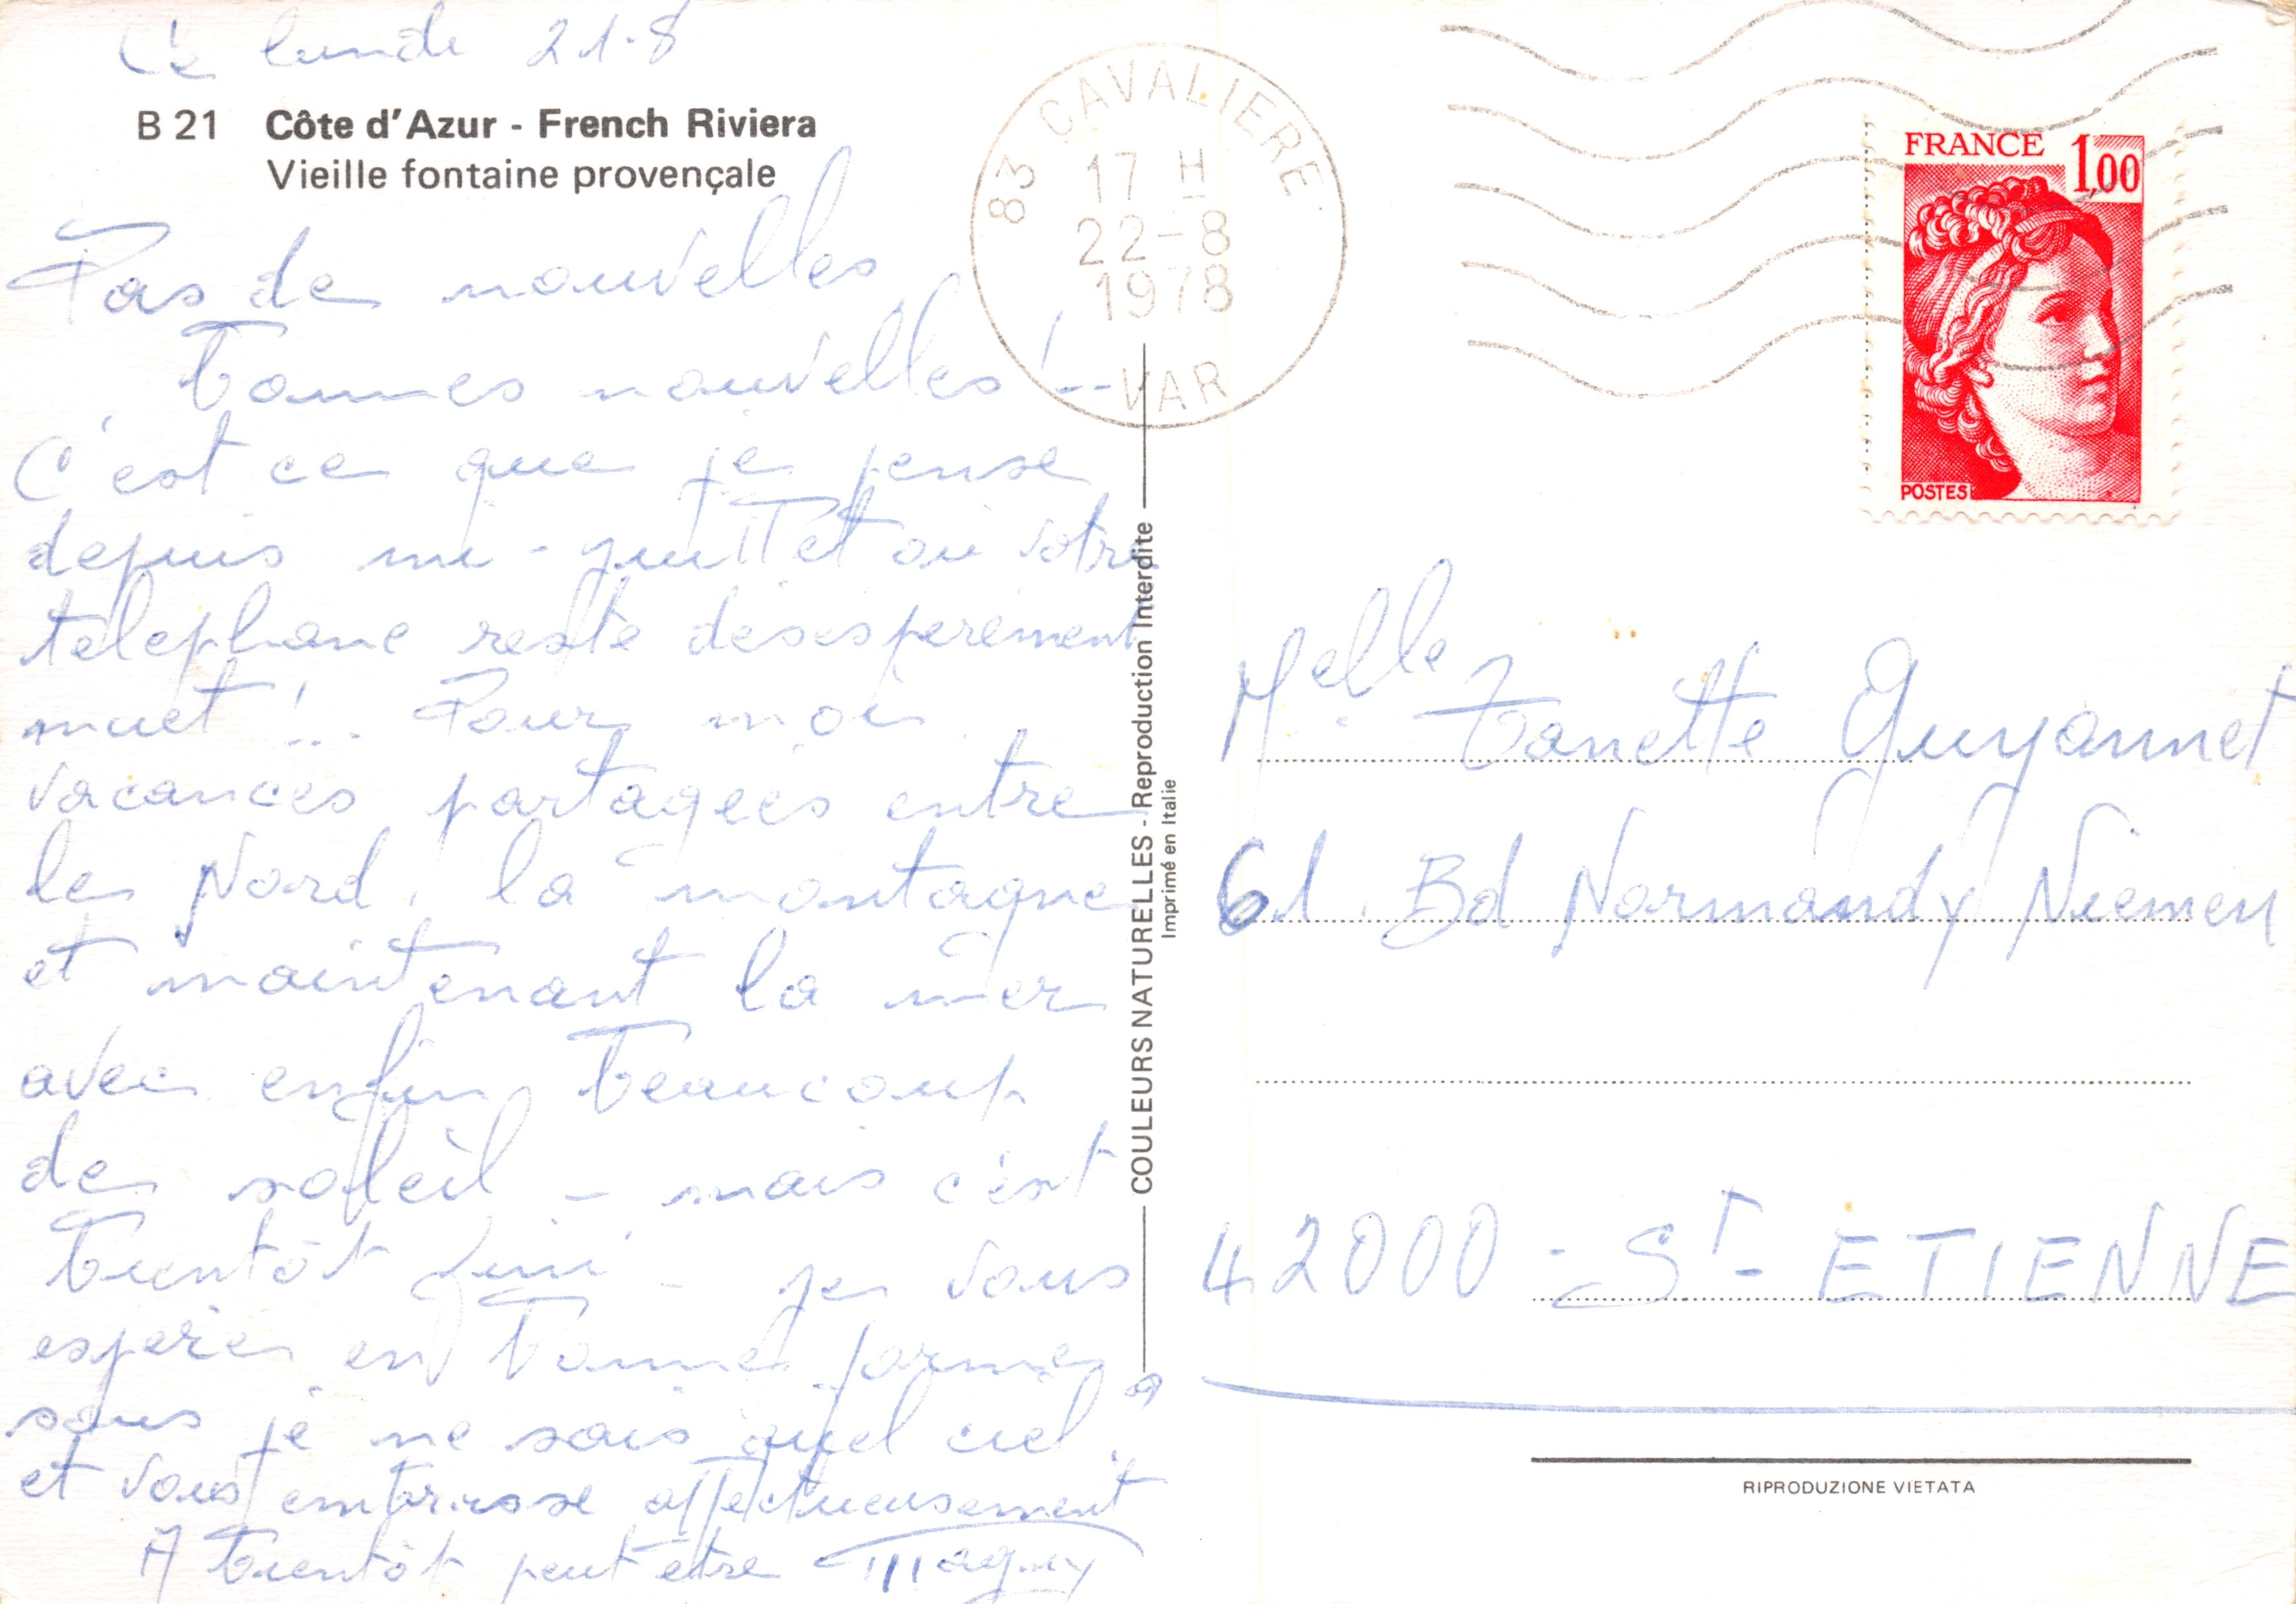 Ce lundi 21-8
B 21 Côte d'Azur - French Riviera
Vieille fontaine provençale
Pas de nouvelles
bonnes nouvelles !..
C'est ce que je pense
depuis mi-juillet où votre
téléphone reste désespérément
muet !.. Pour moi
vacances partagées entre
le Nord, la montagne
et maintenant la mer
avec enfin beaucoup
de soleil - mais c'est
bientôt fini - je vous
espère en bonne forme
sous je ne sais quel ciel ?
et vous embrasse affectueusement
A bientôt peut être Maguy
COULEURS NATURELLES - Reproduction Interdite
Imprimé en Italie
83 CAVALIERE
17 H
22-8
1978
VAR
FRANCE 1,00
POSTES
Melle
Guyonnet
61. Bd Normandy Niemen
42000 - St - ETIENNE
RIPRODUZIONE VIETATA